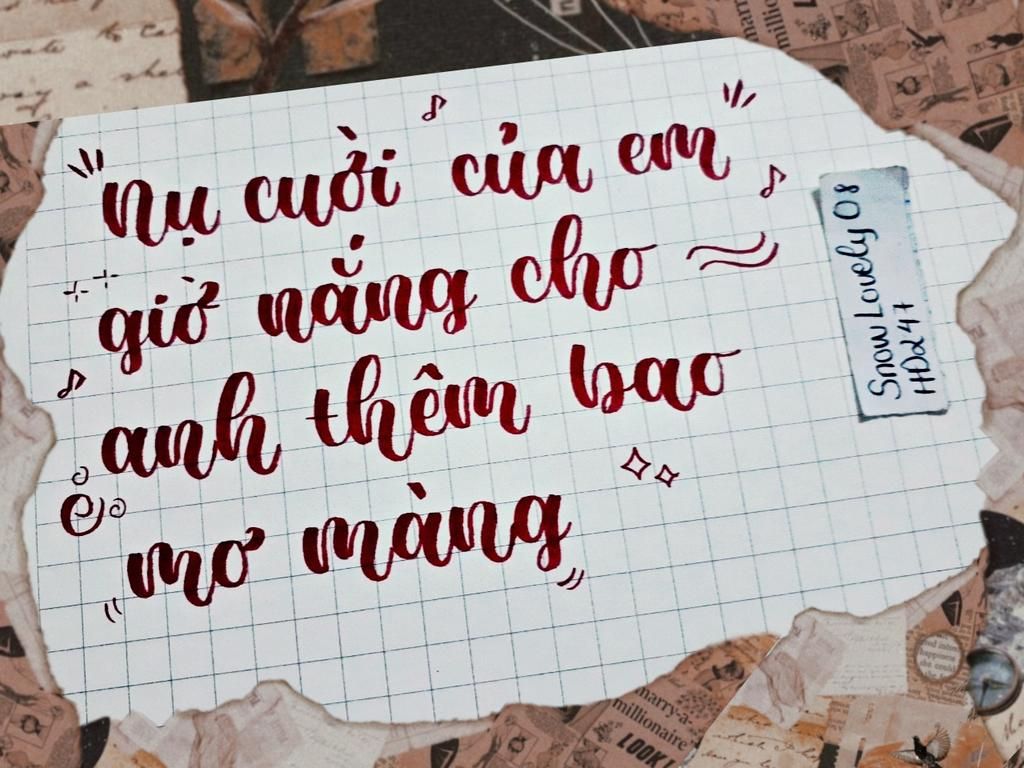 Nụ cười của em
giờ nắng cho
anh thêm bao
mơ màng
SnowLovely08
HDa247
marry-a-
millionaire
LOOK!